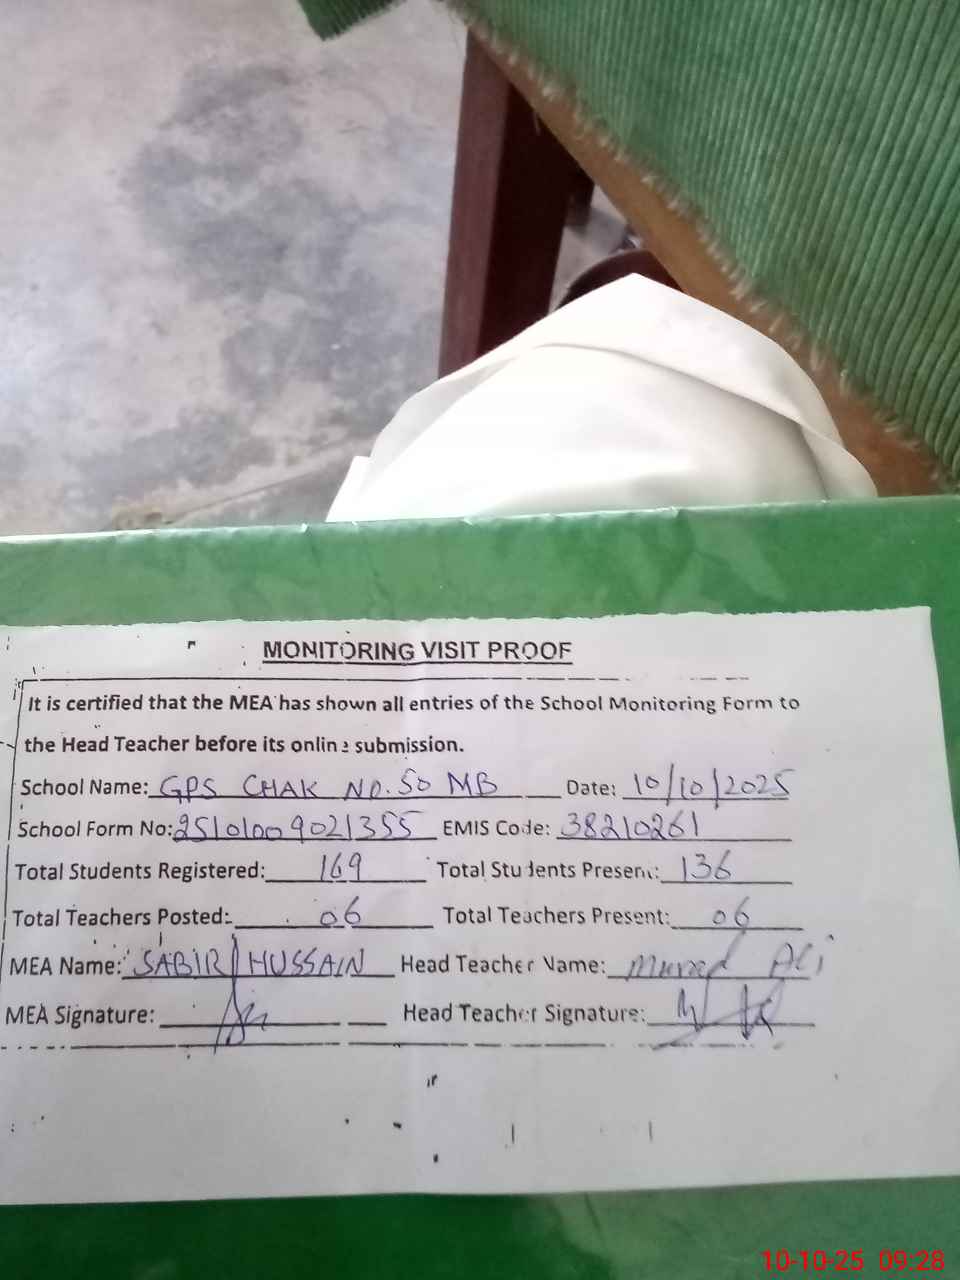 MONITORING VISIT PROOF
It is certified that the MEA has shown all entries of the School Monitoring Form to
the Head Teacher before its online submission.
School Name: GPS CHAK NO. 50 MB Date: 10/10/2025
School Form No: 25101009021355 EMIS Code: 38210261
Total Students Registered: 169 Total Students Present: 136
Total Teachers Posted: 06 Total Teachers Present: 06
MEA Name: SABIR HUSSAIN Head Teacher Name: Murad Ali
MEA Signature: Head Teacher Signature:
10-10-25 09:28